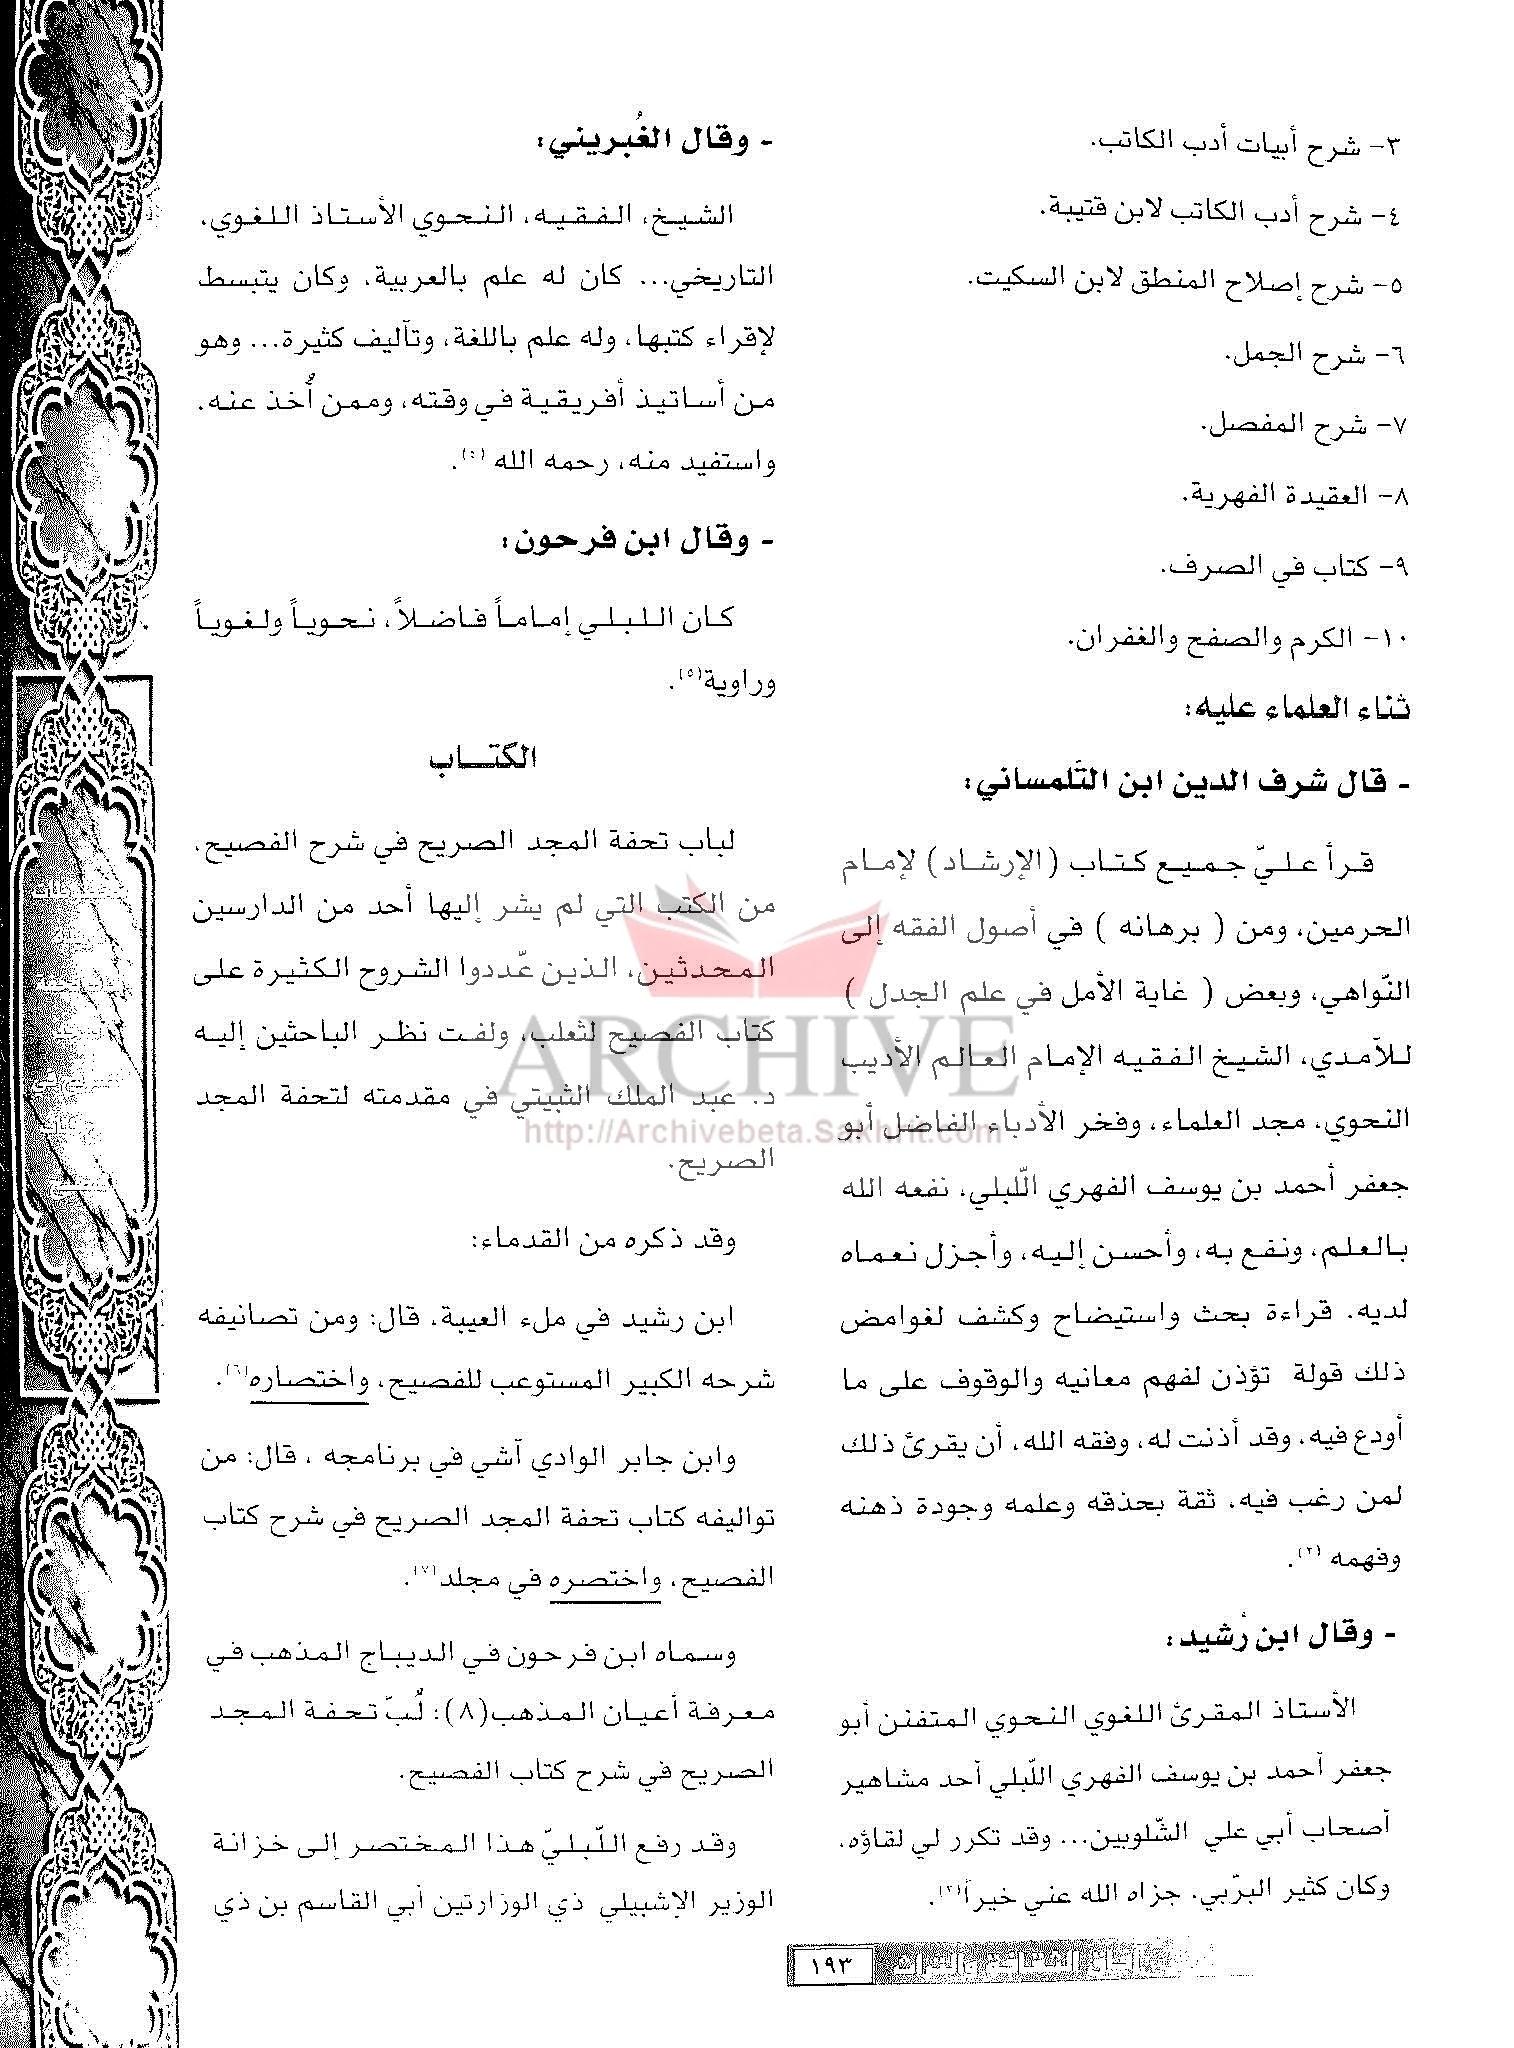 ٣- شرح أبيات أدب الكاتب.
٤- شرح أدب الكاتب لابن قتيبة.
٥- شرح إصلاح المنطق لابن السكيت.
٦- شرح الجمل.
٧- شرح المفصل.
٨- العقيدة الفهرية.
٩- كتاب في الصرف.
١٠- الكرم والصفح والغفران.
ثناء العلماء عليه:
- قال شرف الدين ابن التّلمساني:
قرأ عليّ جميع كتاب (الإرشاد) لإمام
الحرمين، ومن ( برهانه ) في أصول الفقه إلى
النّواهي، وبعض ( غاية الأمل في علم الجدل )
للآمدي، الشيخ الفقيه الإمام العالم الأديب
النحوي، مجد العلماء، وفخر الأدباء الفاضل أبو
جعفر أحمد بن يوسف الفهري اللّبلي، نفعه الله
بالعلم، ونفع به، وأحسن إليه، وأجزل نعماه
لديه. قراءة بحث واستيضاح وكشف لغوامض
ذلك قولة تؤذن لفهم معانيه والوقوف على ما
أودع فيه، وقد أذنت له، وفقه الله، أن يقرئ ذلك
لمن رغب فيه، ثقة بحذقه وعلمه وجودة ذهنه
وفهمه (٢).
- وقال ابن رُشيد:
الأستاذ المقرئ اللغوي النحوي المتفنن أبو
جعفر أحمد بن يوسف الفهري اللّبلي أحد مشاهير
أصحاب أبي علي الشّلوبين... وقد تكرر لي لقاؤه،
وكان كثير البرّبي. جزاه الله عني خيراً(٣).
- وقال الغُبريني:
الشيخ، الفقيه، النحوي الأستاذ اللغوي،
التاريخي... كان له علم بالعربية، وكان يتبسط
لإقراء كتبها، وله علم باللغة، وتآليف كثيرة... وهو
من أساتيذ أفريقية في وقته، وممن أُخذ عنه،
واستفيد منه، رحمه الله (٤).
- وقال ابن فرحون:
كان اللبلي إماماً فاضلاً، نحوياً ولغوياً
وراوية(٥).
الكتــاب
لباب تحفة المجد الصريح في شرح الفصيح،
من الكتب التي لم يشر إليها أحد من الدارسين
المحدثين، الذين عّددوا الشروح الكثيرة على
كتاب الفصيح لثعلب، ولفت نظر الباحثين إليه
د. عبد الملك الثبيتي في مقدمته لتحفة المجد
الصريح.
وقد ذكره من القدماء:
ابن رشيد في ملء العيبة، قال: ومن تصانيفه
شرحه الكبير المستوعب للفصيح، واختصاره(٦).
وابن جابر الوادي آشي في برنامجه ، قال: من
تواليفه كتاب تحفة المجد الصريح في شرح كتاب
الفصيح، واختصره في مجلد(٧).
وسماه ابن فرحون في الديباج المذهب في
معرفة أعيان المذهب(٨): لُبّ تحفة المجد
الصريح في شرح كتاب الفصيح.
وقد رفع اللّبليّ هذا المختصر إلى خزانة
الوزير الإشبيلي ذي الوزارتين أبي القاسم بن ذي
ARCHIVE
http://Archivebeta.Sakhrit.com
آفاق الثقافة والتراث ١٩٣